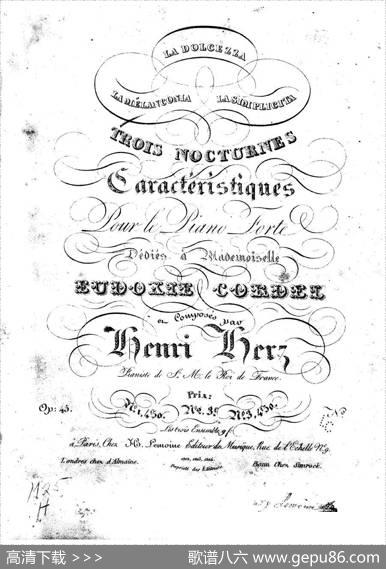 LA DOLCEZZA
LA MÉLANCONIA LA SIMPLICITA
TROIS NOCTURNES
Caractéristiques
Pour le Piano Forte
Dédiés à Mademoiselle
EUDOXIE CORDEL
et Composés par
Henri Herz
Pianiste de S. M. le Roi de France.
Prix:
Op: 45. No. 1, 4f50. No. 2. 3f. No. 3, 4f50.
Les trois Ensemble 9f.
à Paris, Chez H. Lemoine Editeur de Musique, Rue de l'Echelle No 9.
Londres chez d'Almaine. Bonn Chez Simrock.
Propriété des Editeurs
M25
H
Lemoine
高清下载 >>> 歌谱八六 www.gepu86.com